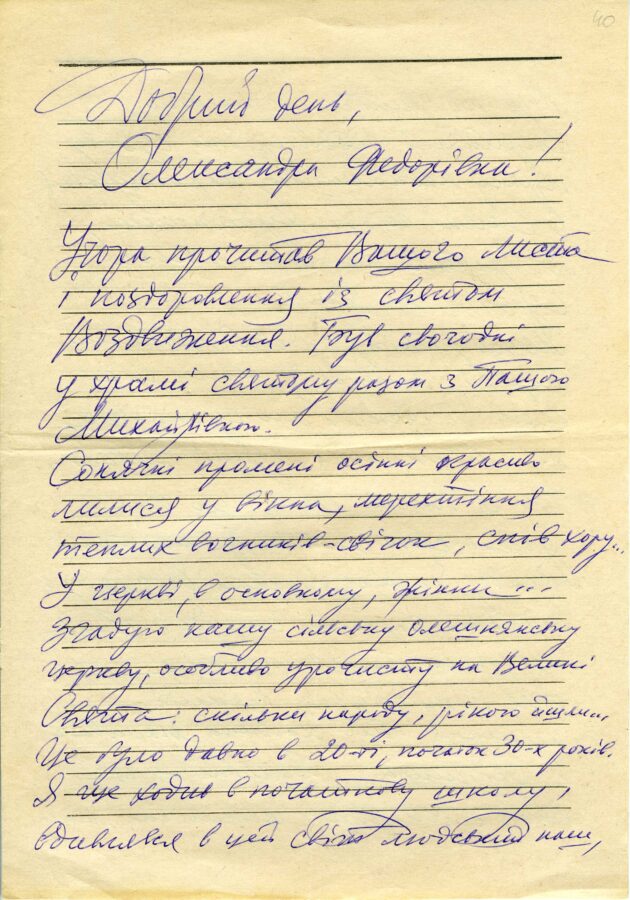 40
Добрий день,
Олександра Федорівна!
Учора прочитав Вашого листа
і поздоровлення із святом
Воздвиження. Був сьогодні
у храмі святому разом з Пашою
Михайлівною.
Сонячні промені осінні красиво
лилися у вікна, мерехтіння
теплих вогників-свічок, спів хору...
У церкві, в основному, жінки...
Згадую нашу сільську Олешнянську
церкву, особливо урочисту на Великі
Свята: скільки народу, рікою йшли...
Це було давно в 20-ті, початок 30-х років.
Я ще ходив в початкову школу,
вдивлявся в цей світ людський наш,